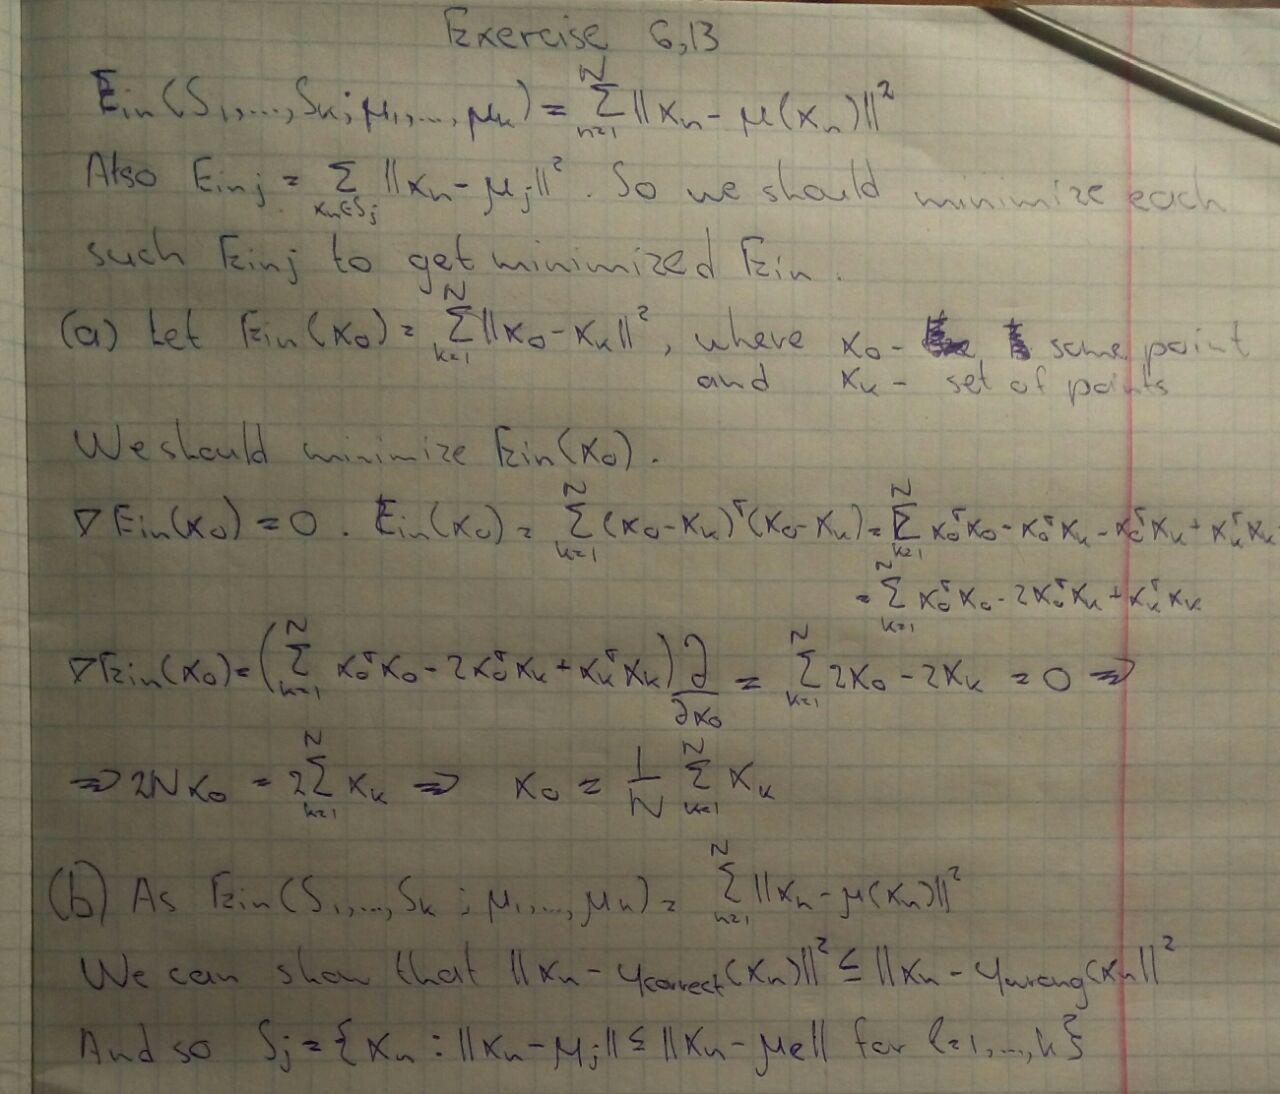 Exercise 6,13
Ein(S₁,...,Sₖ; μ₁,...,μₖ) = Σₙ₌₁ᴺ ||xₙ - μ(xₙ)||²
Also Einⱼ = Σ_{xₙ∈Sⱼ} ||xₙ - μⱼ||². So we should minimize each
such Einⱼ to get minimized Ein.
(a) Let Ein(x₀) = Σₖ₌₁ᴺ ||x₀ - xₖ||², where x₀ - some point
and xₖ - set of points
We should minimize Ein(x₀).
∇Ein(x₀) = 0. Ein(x₀) = Σₖ₌₁ᴺ (x₀ - xₖ)ᵀ(x₀ - xₖ) = Σₖ₌₁ᴺ x₀ᵀx₀ - x₀ᵀxₖ - x₀ᵀxₖ + xₖᵀxₖ
= Σₖ₌₁ᴺ x₀ᵀx₀ - 2x₀ᵀxₖ + xₖᵀxₖ
∇Ein(x₀) = (Σₖ₌₁ᴺ x₀ᵀx₀ - 2x₀ᵀxₖ + xₖᵀxₖ) ∂/∂x₀ = Σₖ₌₁ᴺ 2x₀ - 2xₖ = 0 =>
=> 2Nx₀ = 2Σₖ₌₁ᴺ xₖ => x₀ = 1/N Σₖ₌₁ᴺ xₖ
(b) As Ein(S₁,...,Sₖ; μ₁,...,μₖ) = Σₙ₌₁ᴺ ||xₙ - μ(xₙ)||²
We can show that ||xₙ - μcorrect(xₙ)||² ≤ ||xₙ - μwrong(xₙ)||²
And so Sⱼ = {xₙ : ||xₙ - μⱼ|| ≤ ||xₙ - μₑ|| for l=1,...,k}